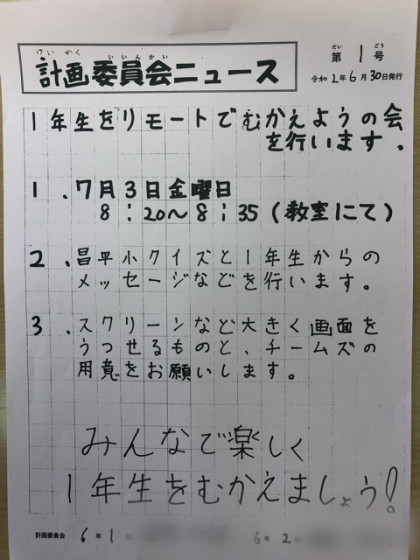 けい かく い いん かい
計画委員会ニュース
だい ごう
第 1 号
令和 2年 6月 30日発行
1年生をリモートでむかえようの会
を行います。
1、7月3日金曜日
8:20~8:35(教室にて)
2、昌平小クイズと1年生からの
メッセージなどを行います。
3、スクリーンなど大きく画面を
うつせるものと、チームズの
用意をお願いします。
みんなで楽しく
1年生をむかえましょう!
計画委員会 6年1 6年2